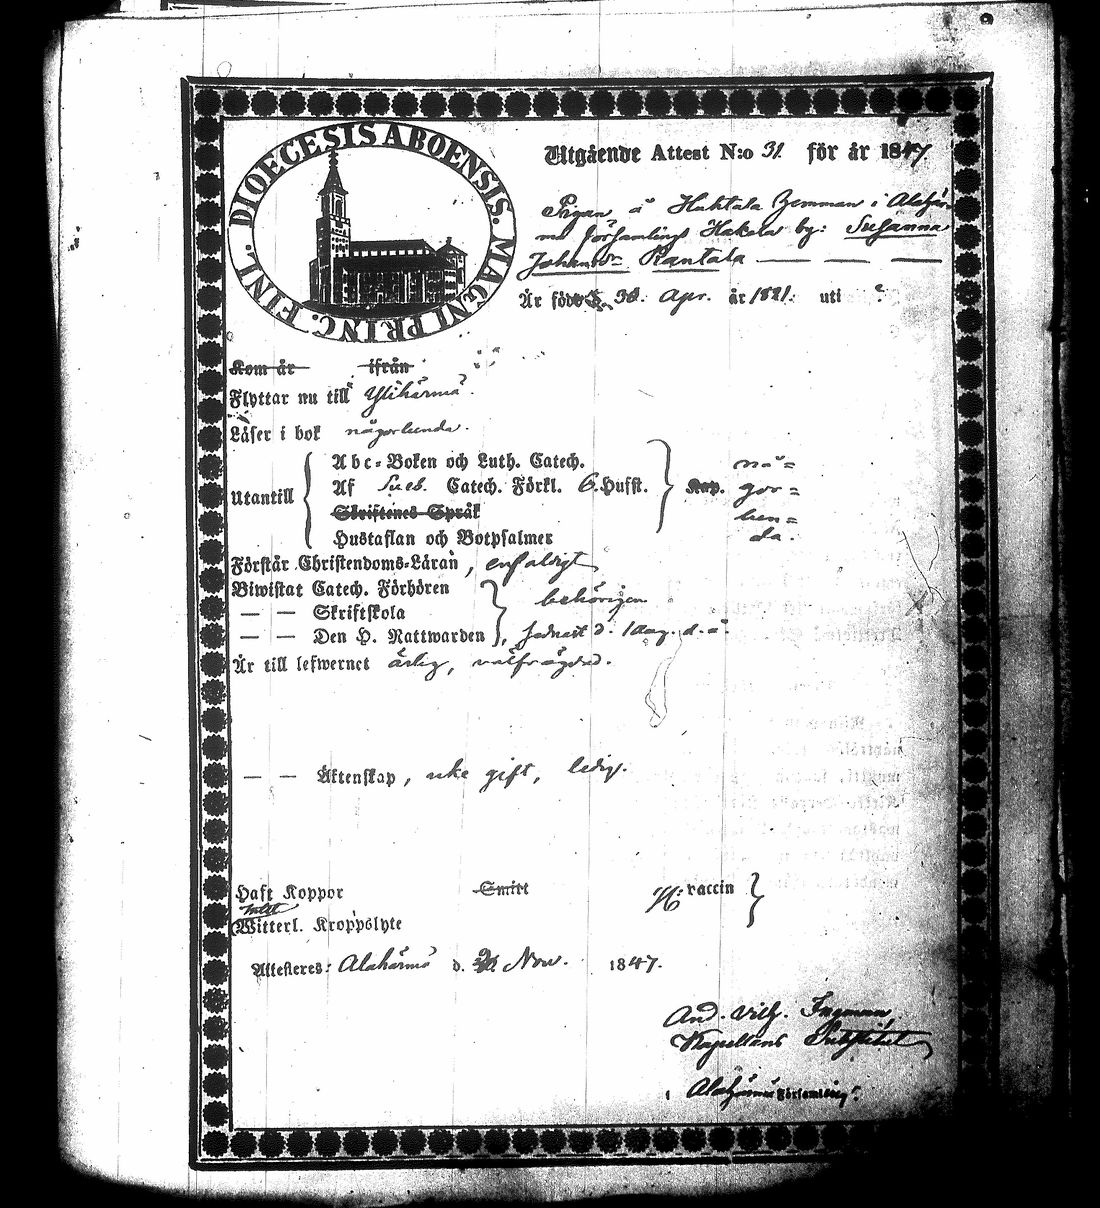 DIOECESIS ABOENSIS. MAGNI PRINC. FINL.
Utgående Attest N:o 31. för år 1847
Pigan å Huhtala Hemman i Alahär-
mä församling Hakola by: Susanna
Johansdr Rantala
Är född d. 30. Apr. år 1821. uti
Kom år ifrån
Flyttar nu till Ylihärmä.
Läser i bok någorlunda.
Utantill
Abc-Boken och Luth. Catech.
Af Sveb. Catech. Förkl. 6. Hufst. Kap.
Skriftenes Språk
Hustaflan och Botpsalmer
nå=
gor=
lun=
da.
Förstår Christendoms-Läran, enfaldigt
Biwistat Catech. Förhören
— — Skriftskola
— — Den H. Nattwarden
behörigen
, sednast d. 1 Aug. d. å.
Är till lefwernet ärlig, välfrägdad.
— — Äktenskap, icke gift, ledig.
Haft Koppor Smitt H. vaccin
Witterl. Kroppslyte
Attesteres: Alahärmä d. Nov. 1847.
And. Vilh. Ingman
Kapellans Substitut
i Alahärmä Församling.